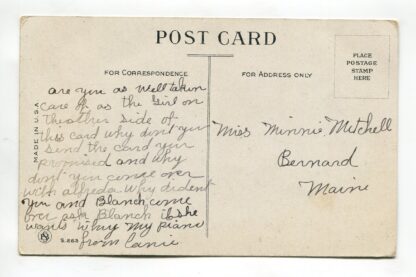 POST CARD
FOR CORRESPONDENCE
FOR ADDRESS ONLY
PLACE
POSTAGE
STAMP
HERE
MADE IN U.S.A
are you as well taken
care of as the Girl on
the other side of
this card why dont you
send the card you
promised and why
dont you come over
with alfreda why dident
you and Blanch come
over ask Blanch if she
wants to buy My piano
from
Miss Minnie Mitchell
Bernard
Maine